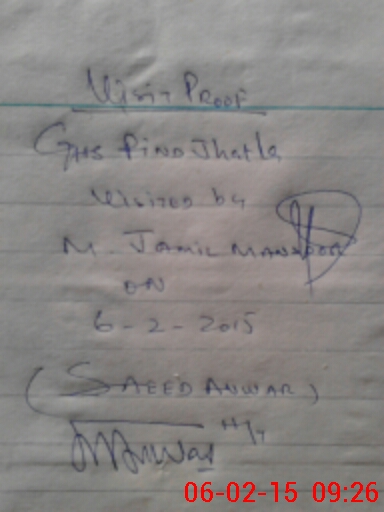 Visit Proof
GHS Pind Jhatla
Visited by
M. Jamil Mansoor
ON
6-2-2015
(SAEED ANWAR)
Anwar H/T
06-02-15 09:26